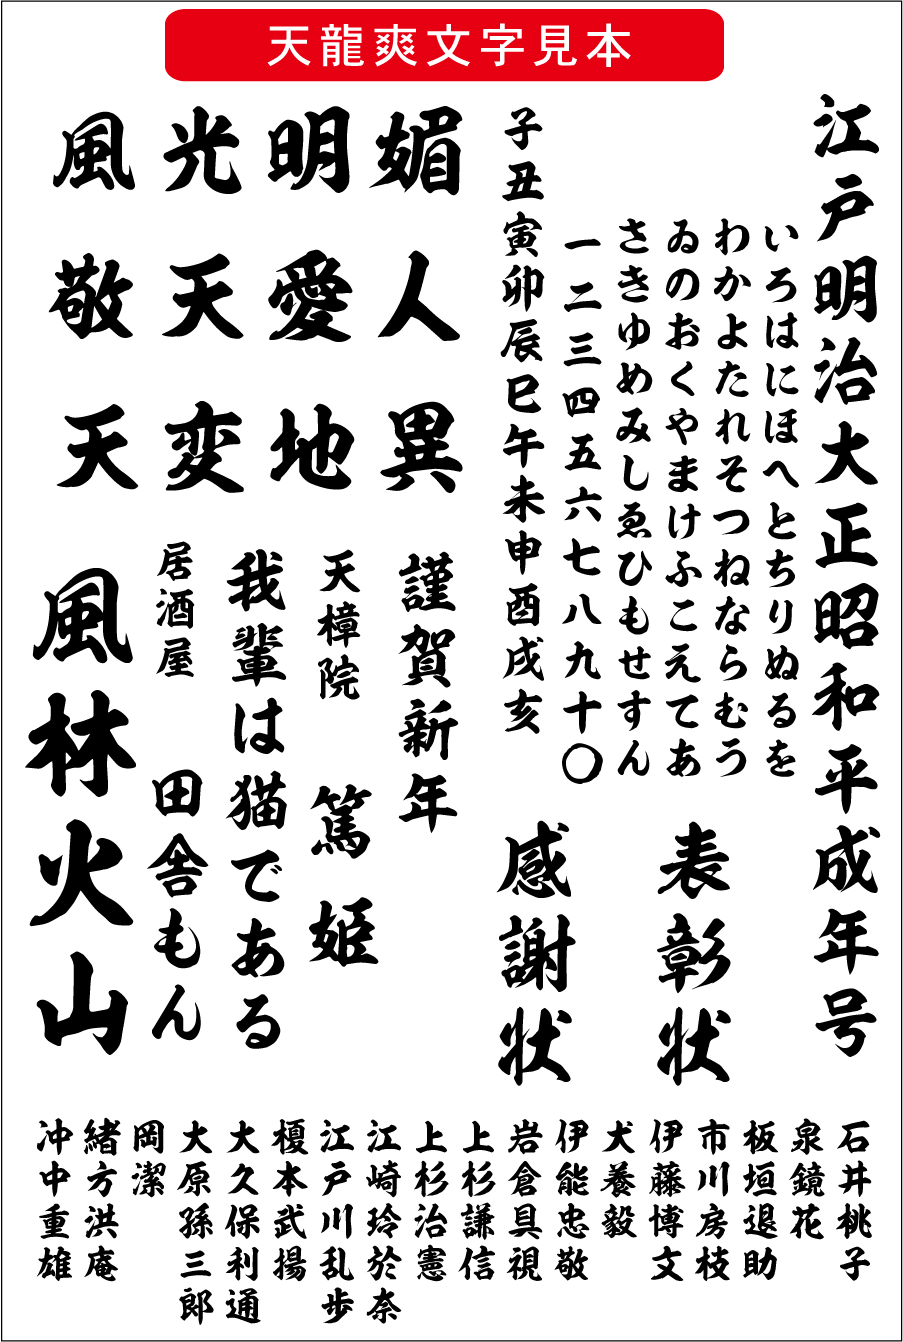 天龍爽文字見本
江戸明治大正昭和平成年号
いろはにほへとちりぬるを
わかよたれそつねならむう
ゐのおくやまけふこえてあ
さきゆめみしゑひもせすん
一二三四五六七八九十〇
子丑寅卯辰巳午未申酉戌亥
表彰状
感謝状
媚人異
明愛地
光天変
風敬天
謹賀新年
天樟院
篤姫
我輩は猫である
居酒屋
田舎もん
風林火山
石井桃子
泉鏡花
板垣退助
市川房枝
伊藤博文
犬養毅
伊能忠敬
岩倉具視
上杉謙信
上杉治憲
江崎玲於奈
江戸川乱歩
榎本武揚
大久保利通
大原孫三郎
岡潔
緒方洪庵
沖中重雄